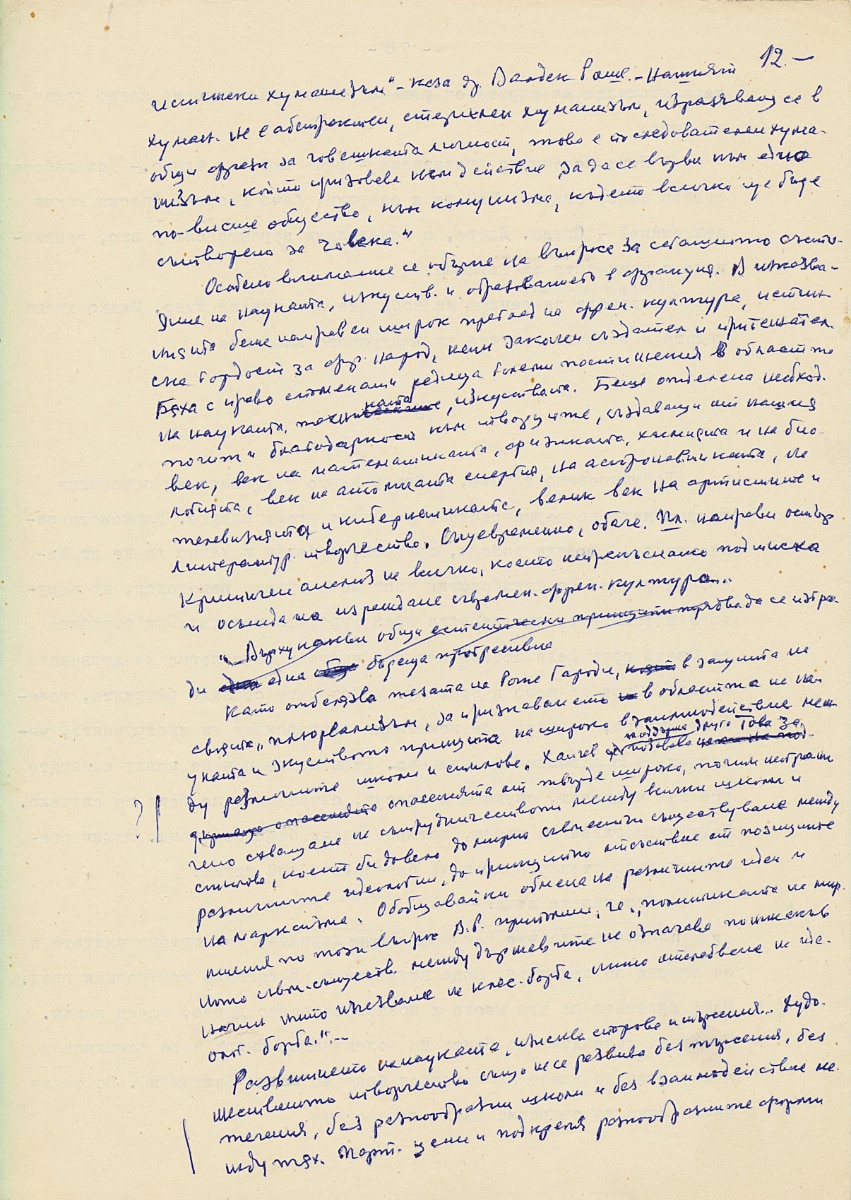 12.—
нистически хуманизъм" – каза др. Валдек Роше. – Нашият
хуман. не е абстрактен, стерилен хуманизъм, изразяващ се в
общи фрази за човешката личност, това е последователен хума-
низъм, който призовава към действие за да се върви към едно
по-висше общество, към комунизма, където всичко ще бъде
сътворено за човека."
Особено внимание се обърна на въпроса за сегашното състо-
яние на науката, изкуств. и образованието в Франция. В изказва-
нията беше направен широк преглед на френ. култура, истин-
ска гордост за фр. народ, неин законен създател и притежател.
Бяха с право споменати редица големи постижения в областта
на науката, техниката, изкуствата. Беше отделена необход.
почит и благодарност към творците, създаващи от нашия
век, век на математиката, физиката, химията и на био-
логията, век на атомната енергия, на астронавтиката, на
телевизията и кибернетиката, велик век на артистичното и
литератур. творчество. Същевременно, обаче, Пл. направи остър
критичен анализ на всичко, което непрекъснато подтиска
и осъжда на израждане съвремен. френ. култура...
"Върху какви общи естетически принципи трябва да се изгра-
ди една една общ бъдеща прогресивна
Като отбелязва тезата на Роже Гароди, в защита на
своята "плюрализъм", за признаването в областта на на-
уката и изкуството принципа на широко взаимодействие меж-
ду различните школи и стилове. Халгев поддържа друго. Това за
опасенията от твърде широко, почти неограни-
?
чено схващане на сътрудничеството между всички школи и
стилове, което би довело до мирно съвместно съществуване между
различните идеологии, до принципно отстъпление от позициите
на марксизма. Обобщавайки обмена на различните идеи и
мнения по този въпрос В.Р. припомни, че "политиката на мир-
ното съвм. съществ. между държавите не означава по никакъв
начин нито изчезване на клас. борба, нито отслабване на иде-
олог. борба."–
Развитието на науката, изисква спорове и търсения... Худо-
жественото творчество също не се развива без търсения, без
течения, без разнообразни школи и без взаимодействие ме-
жду тях. Парт. цени и подкрепя разнообразните форми